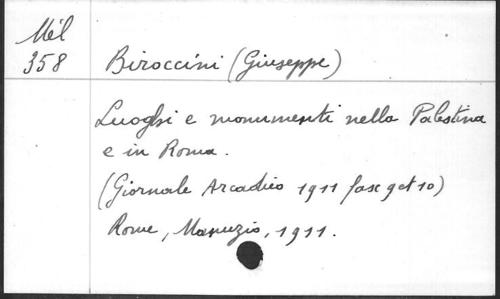 Mél
358
Biroccini (Giuseppe)
Luoghi e monumenti nella Palestina
e in Roma.
(Giornale Arcadico 1911 fasc 9 et 10)
Rome, Manuzio, 1911.